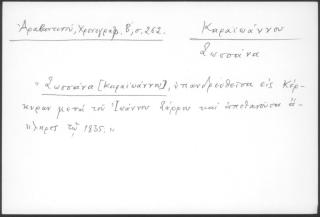 Ἀραβαντινοῦ, Χρονογραφ. Β', σ. 262.
Καραϊωάννου
Σωσσάνα
" Σωσσάνα [Καραϊωάννου], ὑπανδρευθεῖσα εἰς Κέρ-
κυραν μετά τοῦ Ἰωάννου Σάρρου καί ἀποθανοῦσα ἄ-
κληρος τῷ 1835. "